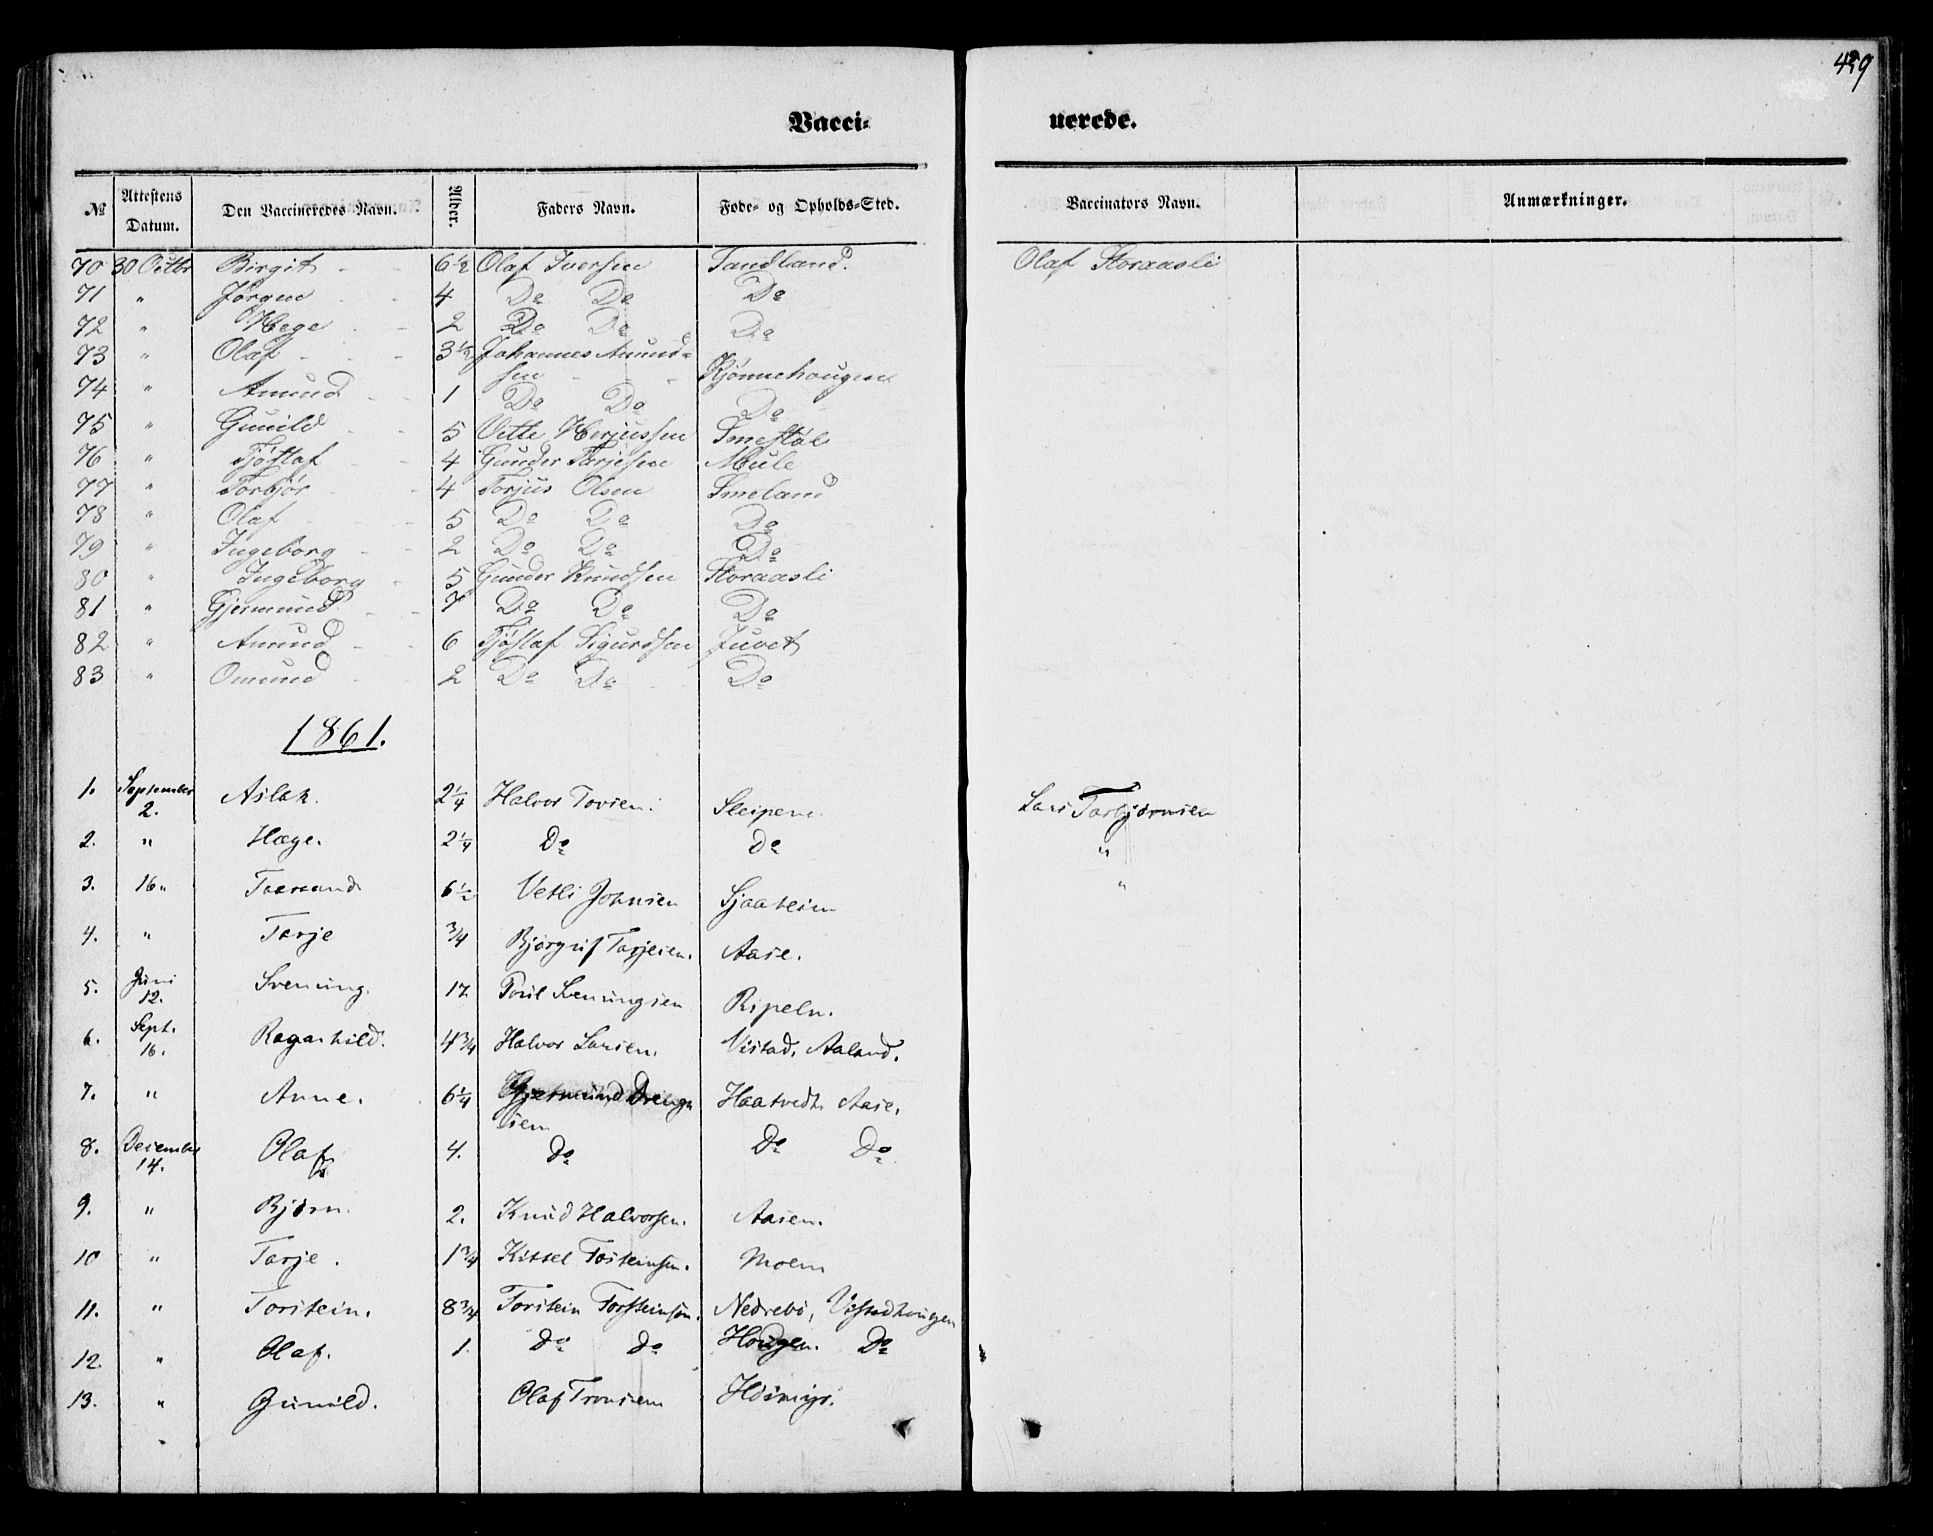 429
Vacci- nerede.
№ Attestens Datum. Den Vaccineredes Navn. Alder. Faders Navn. Føde- og Opholds-Sted. Vaccinators Navn. Anmærkninger.
70 30 Octbr Birgit 6 1/2 Olaf Iversen Sandland. Olaf Storaasli
71 " Jørgen 4 Do Do Do
72 " Hege 2 Do Do Do
73 " Olaf 3 1/2 Johannes Amund-
sen Kjønnehougen
74 " Amund 1 Do Do Do
75 " Gunild 5 Vetle Herjussen Smestøl
76 " Tjøstaf 4 Gunder Tarjesen Mule
77 " Torbjør 4 Torjus Olsen Smeland
78 " Olaf 5 Do Do Do
79 " Ingeborg 2 Do Do Do
80 " Ingeborg 5 Gunder Knudsen Storaasli
81 " Gjermund 7 Do Do Do
82 " Amund 6 Tjøstaf Sigurdsen Juvet
83 " Omund 2 Do Do Do
1861.
1. September 2. Aslak. 2 1/4 Halvor Tovsen. Sleipene. Lars Torbjørnsen
2. " Hæge. 2 1/4 Do Do "
3. 16 " 6 1/2 Vetli Johnsen "
4. " Tarje 3/4 Bjørgulf Tarjeisen. Aase.
5. Juni 12. Svenung. 17 Svenungsen Ripeln.
6. Sept. 16. Ragnhild. 4 3/4 Halvor Larsen. Vistad, Aaland.
7. " Anne. 6 1/4 Gjermund Dreng
sen Haatvedt Aase.
8. Desember 14. Olaf 4. Do Do Do
9. " Bjørn. 2. Knud Halvorsen. Aasen.
10 " Tarje. 1 3/4 Kittel Tosteinsen. Moen
11. " Torstein. 8 3/4 Torstein Torsteinsen. Nedrebø, Vistadhougen
12. " Olaf. 1. Do Do Hougen. Do
13. " Gunild. Olaf Tronsen